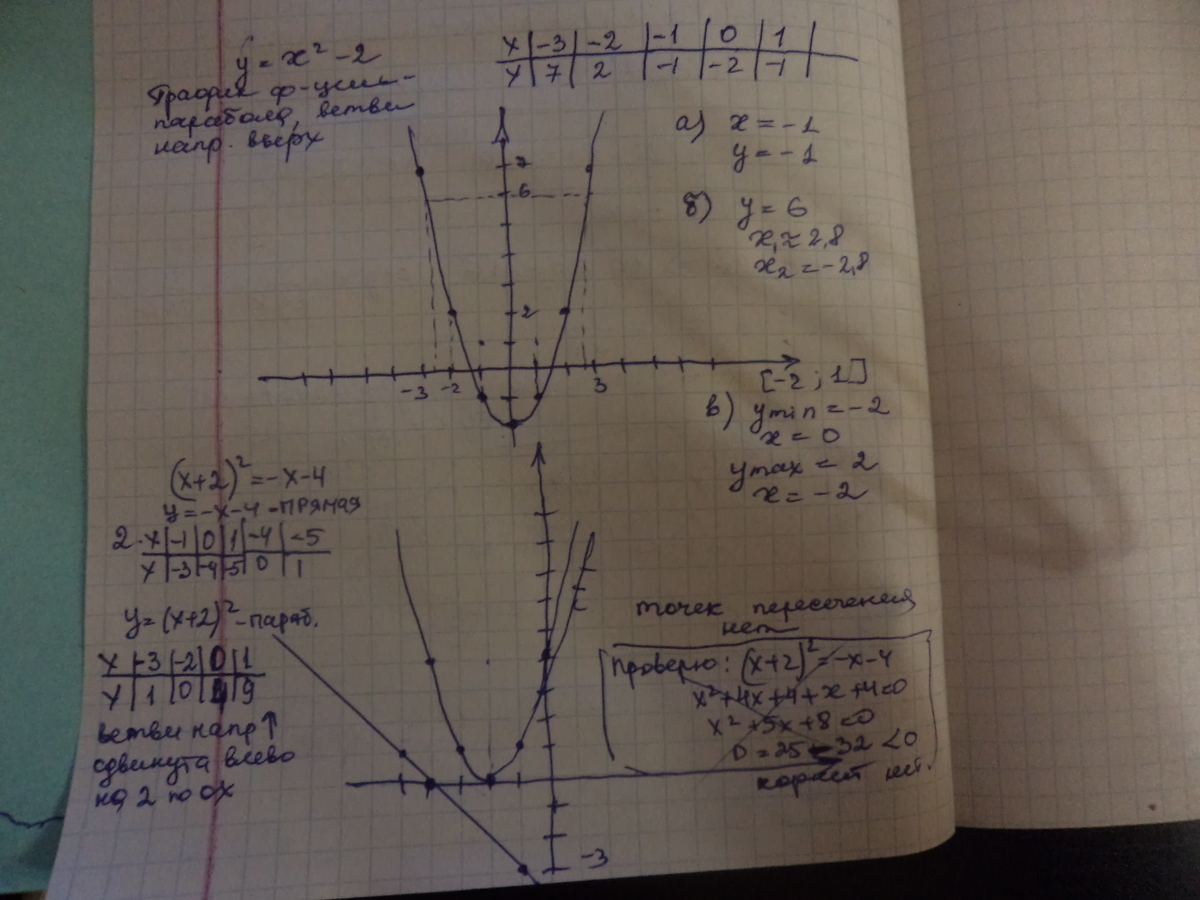 y = x² - 2
График ф-ции -
парабола, ветви
напр. вверх
x | -3 | -2 | -1 | 0 | 1 |
y | 7 | 2 | -1 | -2 | -1 |
а) x = -1
y = -1
б) y = 6
x₁ ≈ 2,8
x₂ = -2,8
7
6
2
-3 -2 3
[-2 ; 1]
в) ymin = -2
x = 0
ymax = 2
x = -2
(x+2)² = -x-4
y = -x-4 - прямая
2. x | -1 | 0 | 1 | -4 | -5
y | -3 | -4 | -5 | 0 | 1
y = (x+2)² - параб.
x | -3 | -2 | 0 | 1
y | 1 | 0 | 4 | 9
ветви напр ↑
сдвинута влево
на 2 по ох
-3
точек пересечения
нет
проверю: (x+2)² = -x-4
x² + 4x + 4 + x + 4 = 0
x² + 5x + 8 = 0
D = 25 - 32 < 0
корней нет.